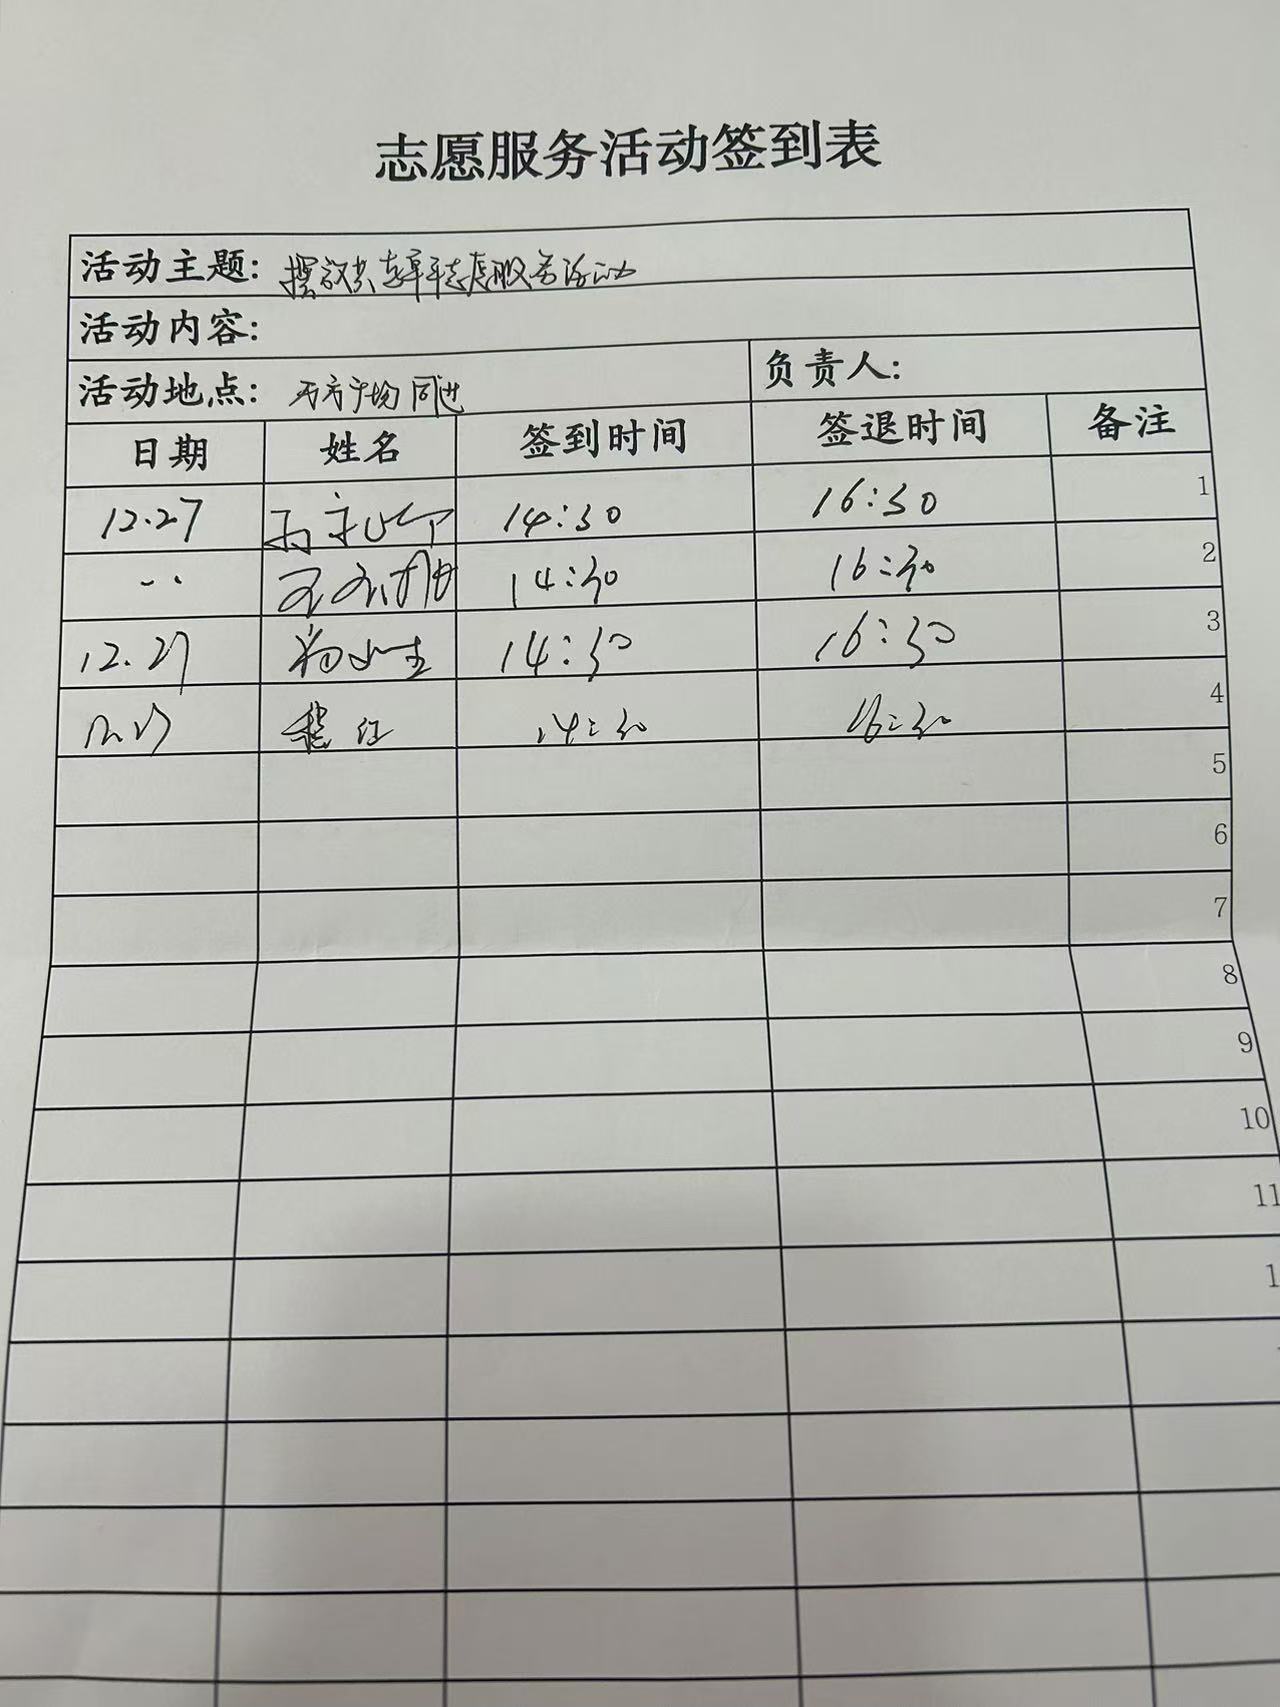 志愿服务活动签到表
活动主题: 摆放共享单车志愿服务活动
活动内容:
活动地点: 万方广场周边
负责人:
日期 姓名 签到时间 签退时间 备注
12.27 14:30 16:30 1
14:30 16:30 2
12.27 14:30 16:30 3
12.27 红 14:30 16:30 4
5
6
7
8
9
10
11
1